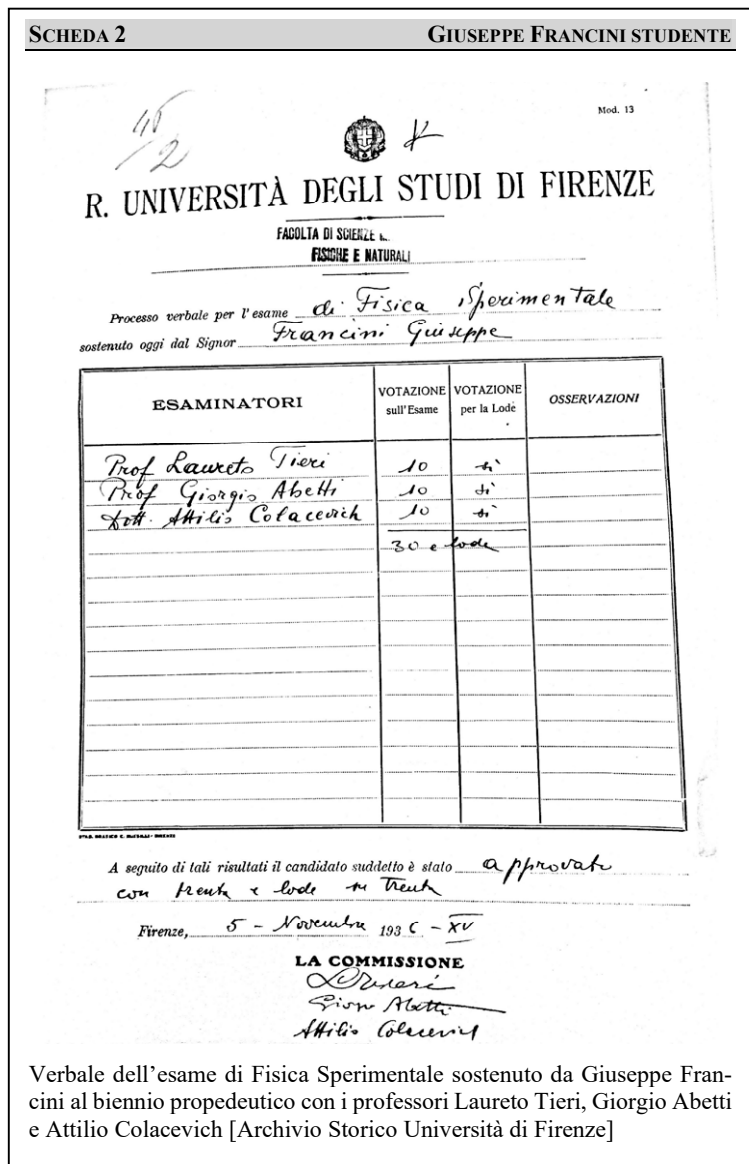 SCHEDA 2 GIUSEPPE FRANCINI STUDENTE
Mod. 13
R. UNIVERSITÀ DEGLI STUDI DI FIRENZE
FACOLTA DI SCIENZE
FISICHE E NATURALI
Processo verbale per l'esame di Fisica Sperimentale
sostenuto oggi dal Signor Francini Giuseppe
ESAMINATORI VOTAZIONE sull'Esame VOTAZIONE per la Lode OSSERVAZIONI
Prof Laureto Tieri 10 sì
Prof Giorgio Abetti 10 sì
Dott. Attilio Colacevich 10 sì
30 e lode
A seguito di tali risultati il candidato suddetto è stato approvato
con trenta e lode su trenta
Firenze, 5 - Novembre 1936 - XV
LA COMMISSIONE
Giorgio Abetti
Attilio Colacevich
Verbale dell'esame di Fisica Sperimentale sostenuto da Giuseppe Fran-
cini al biennio propedeutico con i professori Laureto Tieri, Giorgio Abetti
e Attilio Colacevich [Archivio Storico Università di Firenze]